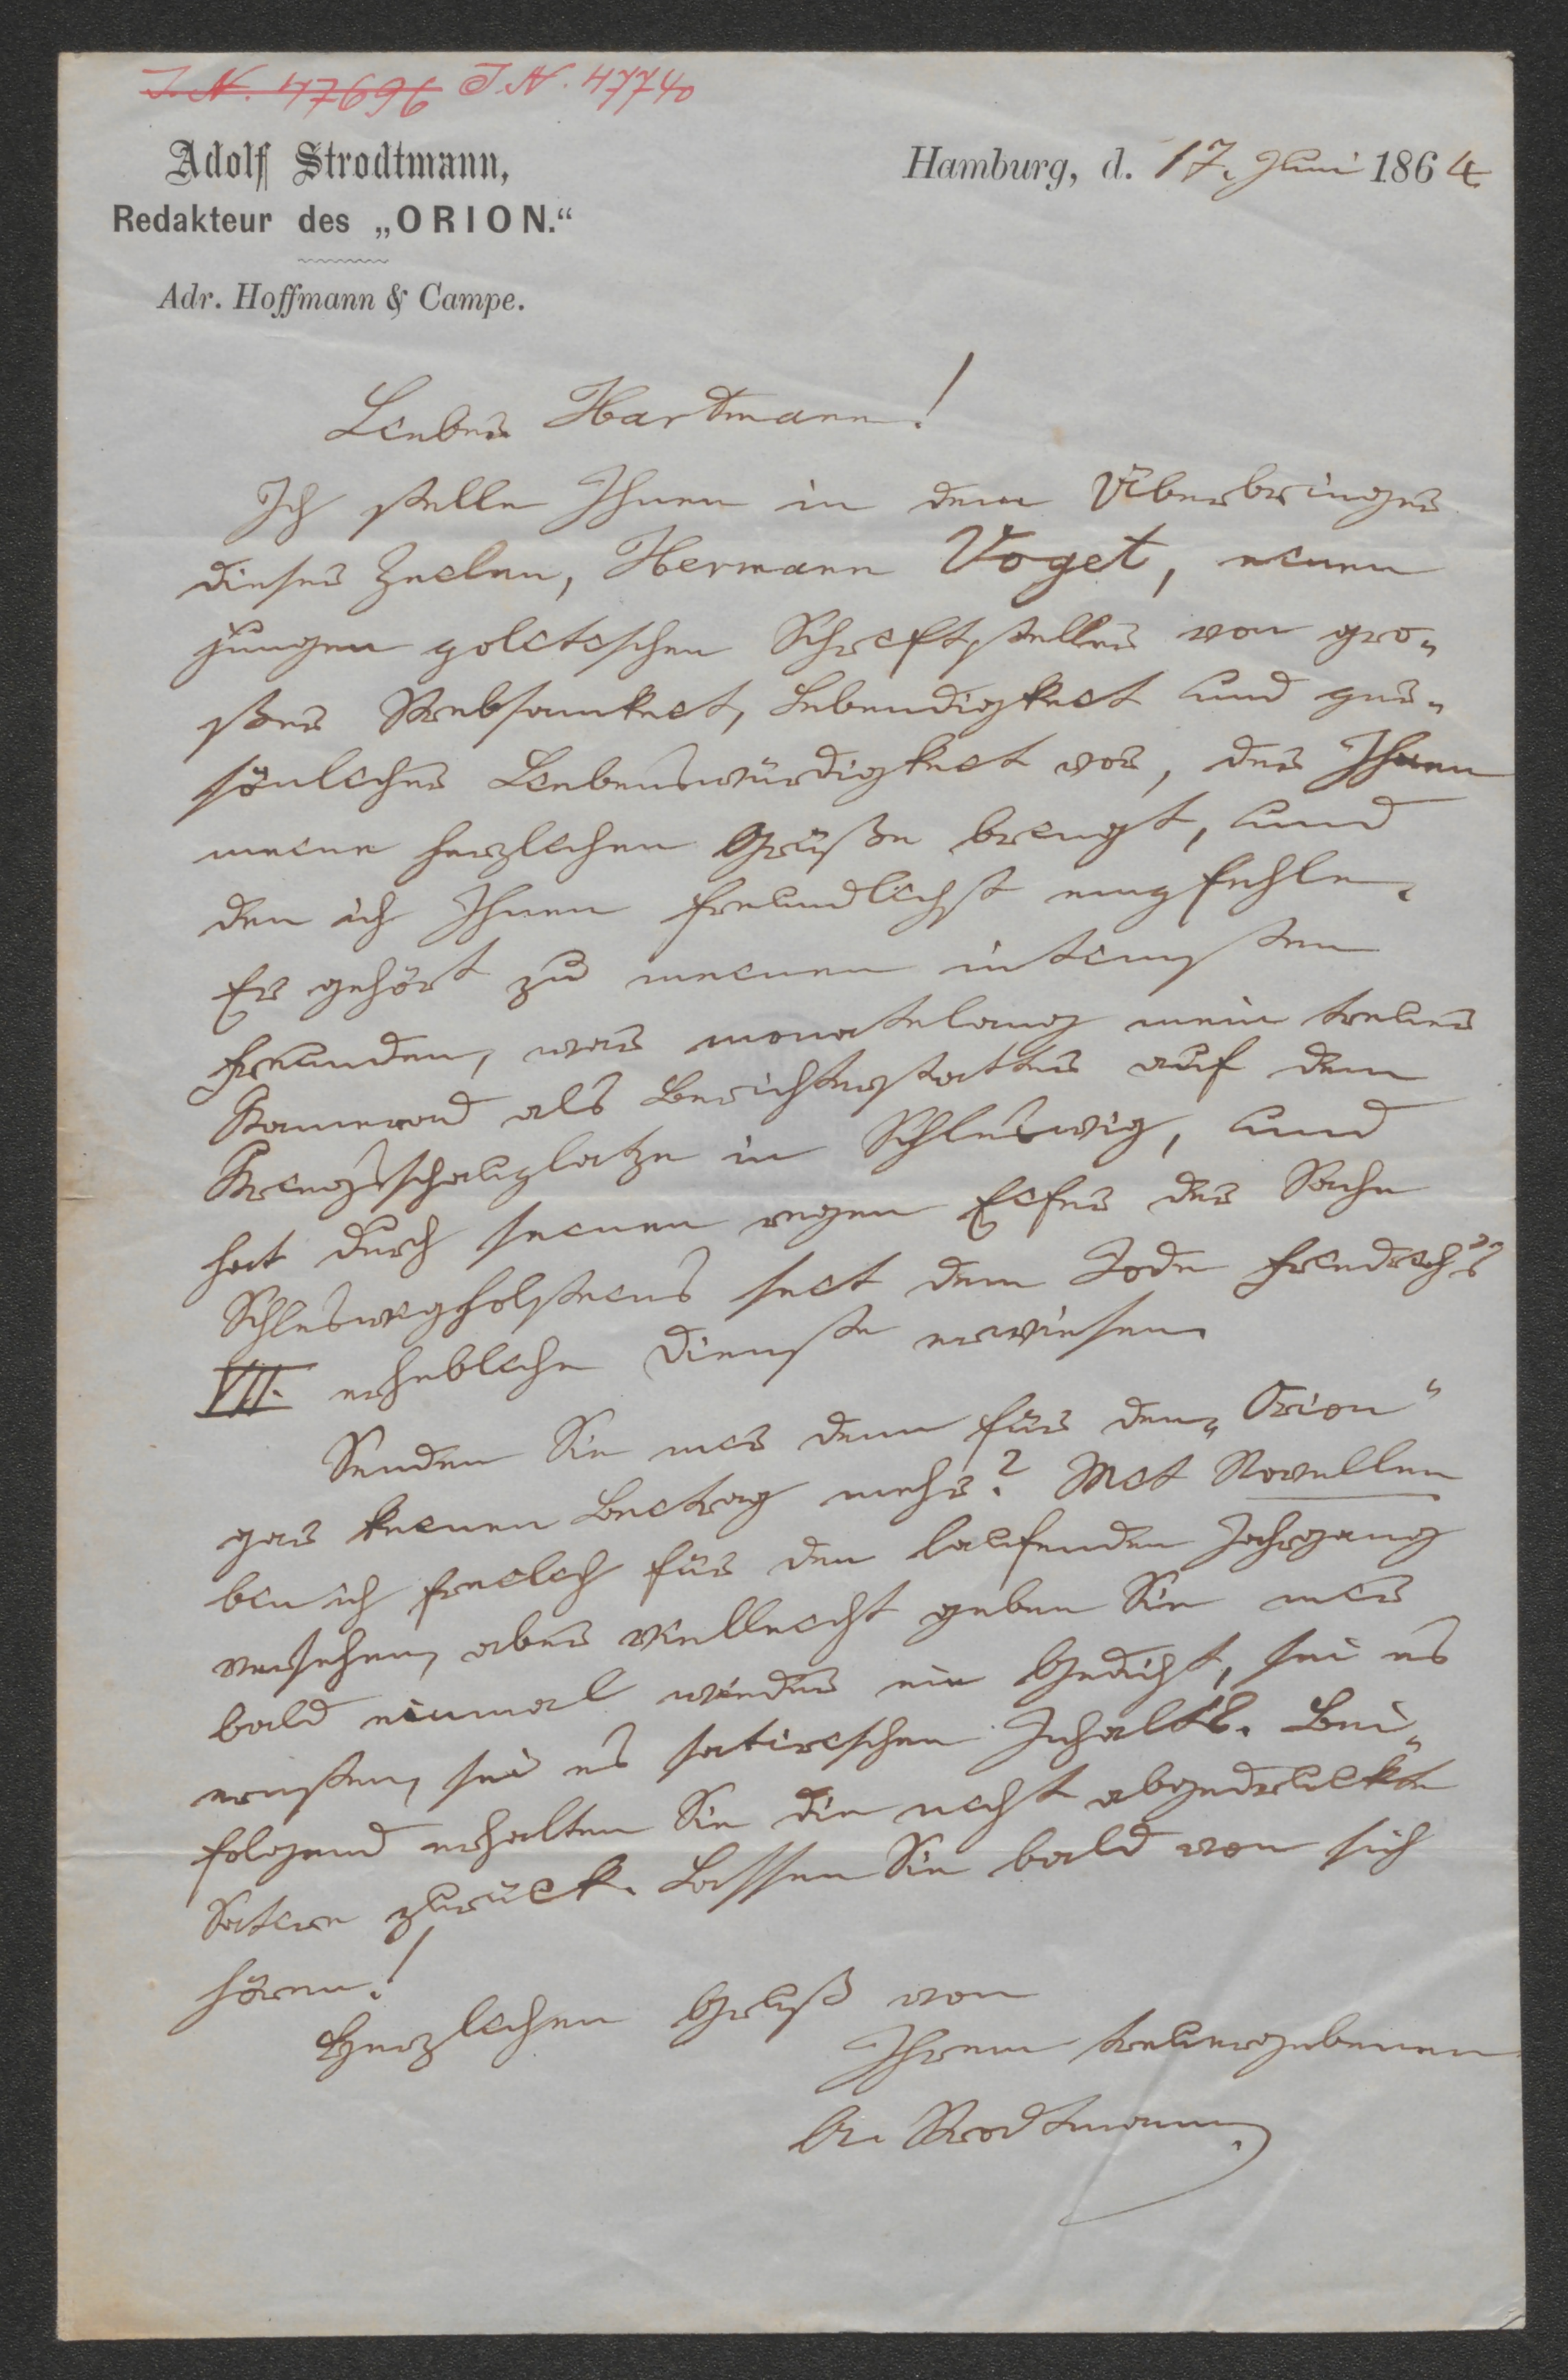 J. N. 47696 J. N. 47740
Adolf Strodtmann,
Redakteur des „ORION.“
Adr. Hoffmann & Campe.
Hamburg, d. 17. Juni 1864
Lieber Hartmann!
Ich stelle Ihnen in dem Überbringer
dieser Zeilen, Hermann Voget, einen
jungen politischen Schriftsteller von gro-
ßer Strebsamkeit, Lebendigkeit und per-
sönlicher Liebenswürdigkeit vor, der Ihnen
meine herzlichen Grüße bringt, und
den ich Ihnen freundlichst empfehle.
Er gehört zu meinen intimsten
Freunden, war monatelang mein treuer
Kamerad als Berichterstatter auf dem
Kriegsschauplatze in Schleswig, und
hat durch seinen regen Eifer der Sache
Schleswigholsteins seit dem Tode Friedrich's
VII. erhebliche Dienste erwiesen.
Senden Sie mir denn für den „Orion“
gar keinen Beitrag mehr? Mit Novellen
bin ich freilich für den laufenden Jahrgang
versehen, aber vielleicht geben Sie mir
bald einmal wieder ein Gedicht, sei es
ernsten, sei es satirischen Inhalts. Bei-
folgend erhalten Sie die nicht abgedruckte
Satire zurück. Lassen Sie bald von sich
hören!
Herzlichen Gruß von
Ihrem treuergebenen
A. Strodtmann.